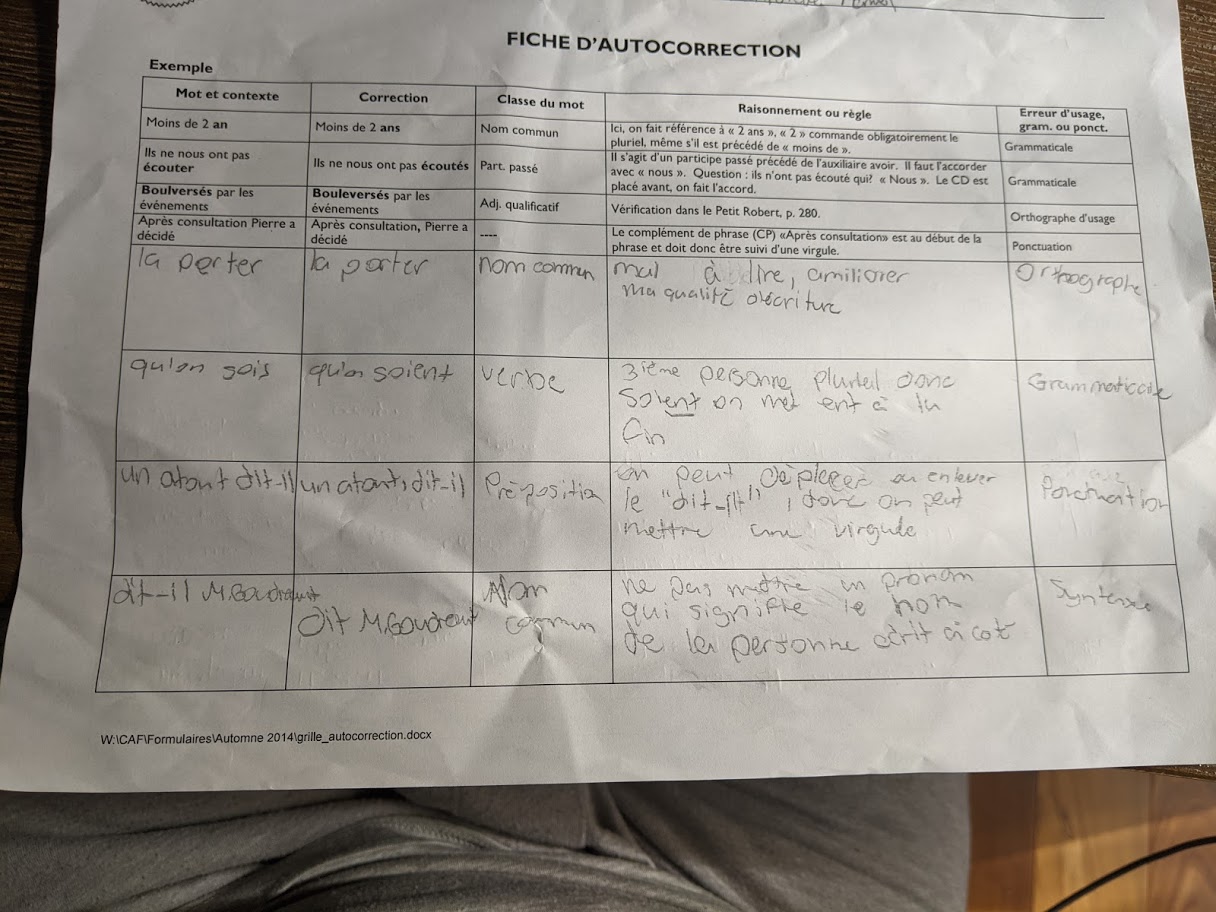 FICHE D'AUTOCORRECTION
Exemple
Mot et contexte
Correction
Classe du mot
Raisonnement ou règle
Erreur d'usage,
gram. ou ponct.
Moins de 2 an
Moins de 2 ans
Nom commun
Ici, on fait référence à « 2 ans », « 2 » commande obligatoirement le
pluriel, même s'il est précédé de « moins de ».
Grammaticale
Ils ne nous ont pas
écouter
Ils ne nous ont pas écoutés
Part. passé
Il s'agit d'un participe passé précédé de l'auxiliaire avoir. Il faut l'accorder
avec « nous ». Question : ils n'ont pas écouté qui? « Nous ». Le CD est
placé avant, on fait l'accord.
Grammaticale
Boulversés par les
événements
Bouleversés par les
événements
Adj. qualificatif
Vérification dans le Petit Robert, p. 280.
Orthographe d'usage
Après consultation Pierre a
décidé
Après consultation, Pierre a
décidé
----
Le complément de phrase (CP) «Après consultation» est au début de la
phrase et doit donc être suivi d'une virgule.
Ponctuation
la perter
la porter
nom commun
mal à lire, amiliorer
ma qualité d'écriture
Orthographe
qu'on sois
qu'on soient
verbe
3ième personne plurleil donc
soient on met ent à la
fin
Grammaticale
un atout dit-il
un atout, dit-il
Préposition
on peut déplacer ou enlever
le "dit-il", donc on peut
mettre une virgule
Ponctuation
dit-il M.Goudreaut
dit M.Goudreut
Nom
commun
ne pas mettre un pronom
qui signifie le nom
de la personne écrit à cot
Syntaxe
W:\CAF\Formulaires\Automne 2014\grille_autocorrection.docx